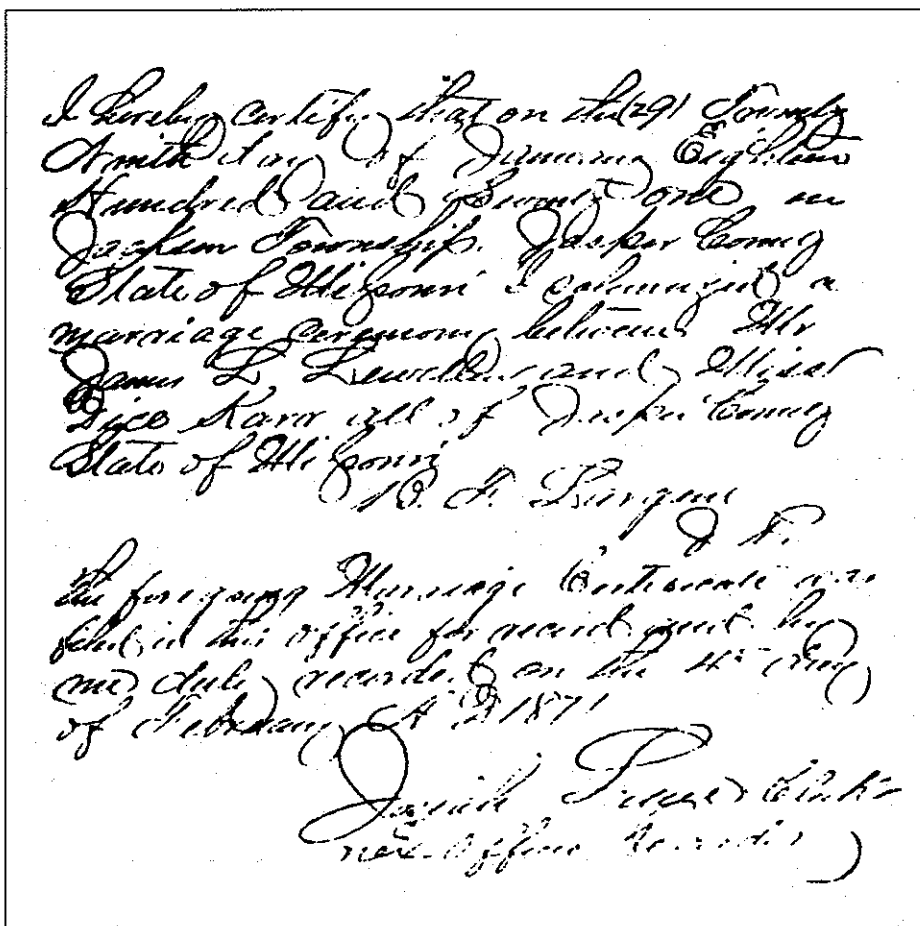 I hereby certify that on the (29) Twenty
Nineth day of January Eighteen
Hundred and Seventy one in
Jackson Township Jasper County
State of Missouri I solemnized a
marriage ceremony between Mr
James L. Lewellen and Miss
Dice Karr all of Jasper County
State of Missouri
B. F.
J. P.
The foregoing Marriage Certificate was
filed in this office for record and by
me duly recorded on the 4th day
of February A D 1871
Josiah Clerk &
Ex. Officio Recorder